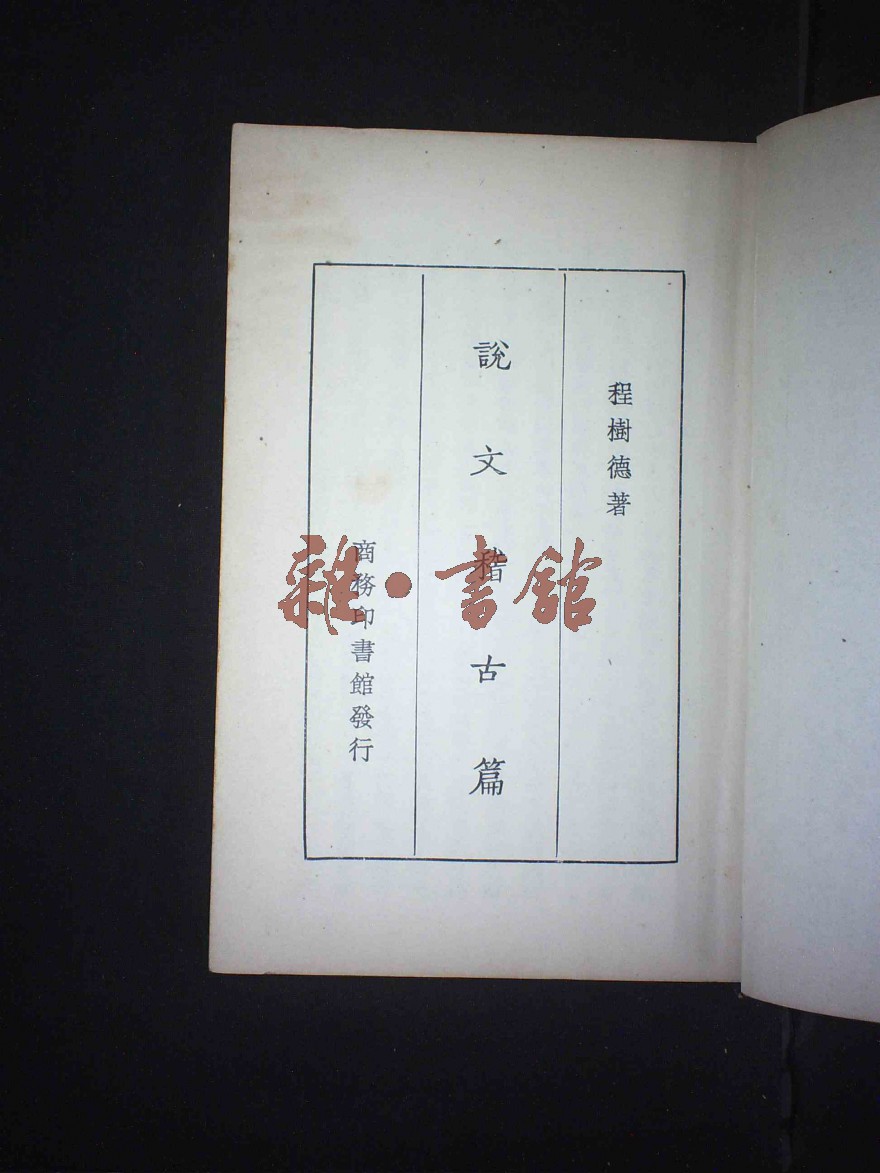 程樹德著
說文稽古篇
商務印書館發行
雜·書館